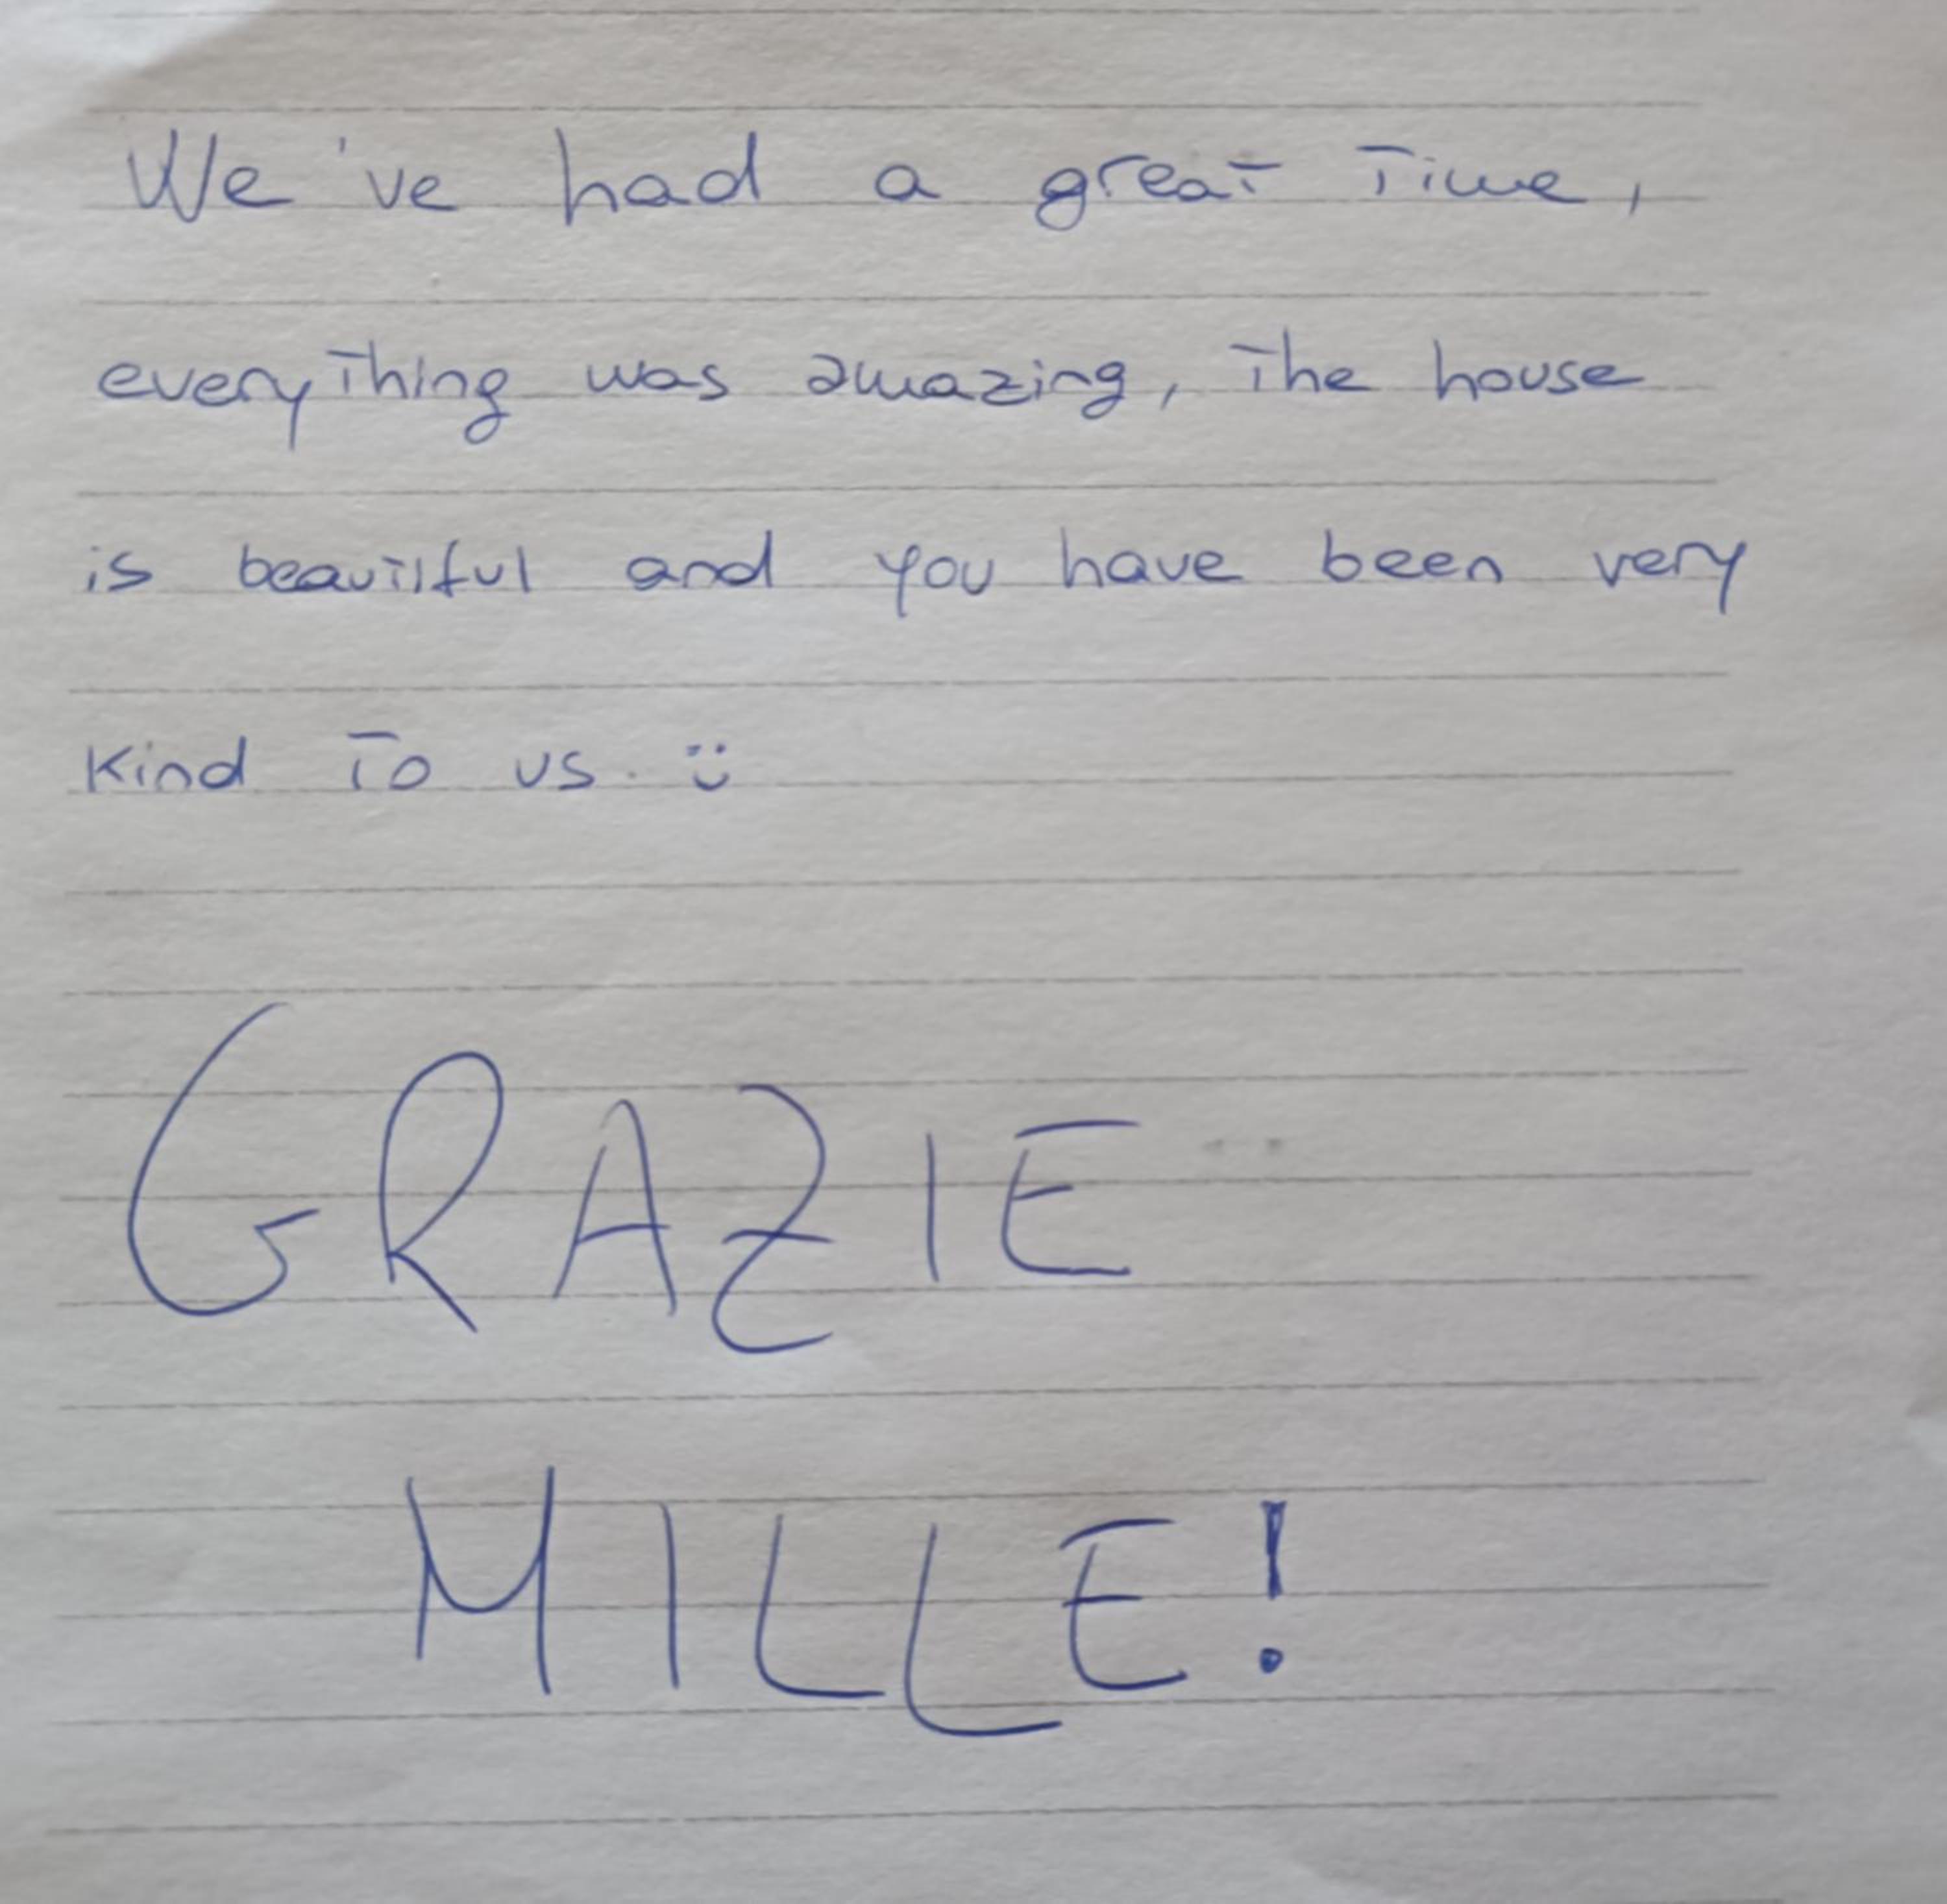 We've had a great time,
everything was amazing, the house
is beautiful and you have been very
kind to us. :)
GRAZIE
MILLE!